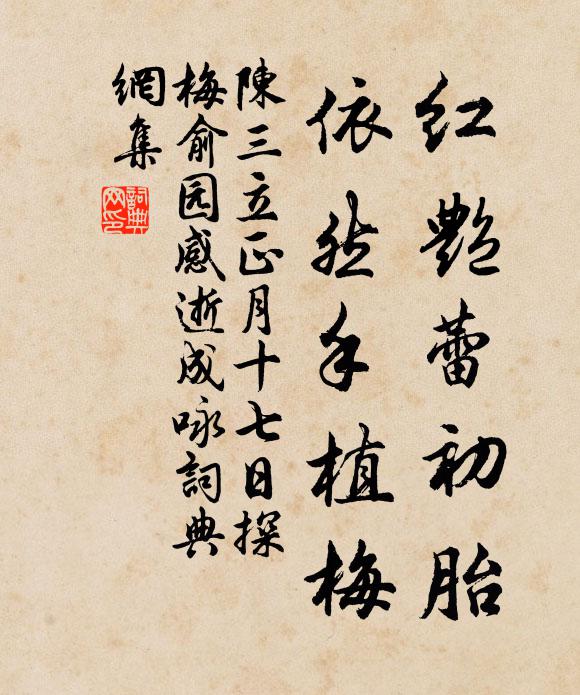 红艷蕾初胎
依然手植梅
陳三立正月十七日探
梅俞园感逝成咏詞典
網集
詞典
网印